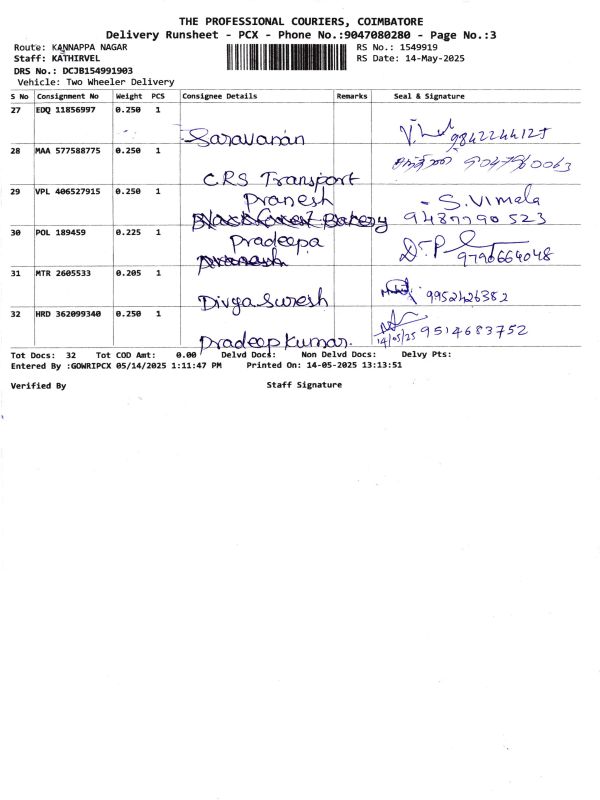 THE PROFESSIONAL COURIERS, COIMBATORE
Delivery Runsheet - PCX - Phone No.:9047080280 - Page No.:3
Route: KANNAPPA NAGAR RS No.: 1549919
Staff: KATHIRVEL RS Date: 14-May-2025
DRS No.: DCJB154991903
Vehicle: Two Wheeler Delivery
S No Consignment No Weight PCS Consignee Details Remarks Seal & Signature
27 EDQ 11856997 0.250 1
Saravanan 9842244125
28 MAA 577588775 0.250 1
CRS Transport 9047960063
29 VPL 406527915 0.250 1 Pranesh - S.Vimala
Black Forest Bakery 9487790523
30 POL 189459 0.225 1
Pradeepa Dr.P 9790664048
Pranesh
31 MTR 2605533 0.205 1
Divya Suresh 9952426382
32 HRD 362099340 0.250 1
Pradeep Kumar. 14/05/25 9514683752
Tot Docs: 32 Tot COD Amt: 0.00 Delvd Docs: Non Delvd Docs: Delvy Pts:
Entered By :GOWRIPCX 05/14/2025 1:11:47 PM Printed On: 14-05-2025 13:13:51
Verified By Staff Signature